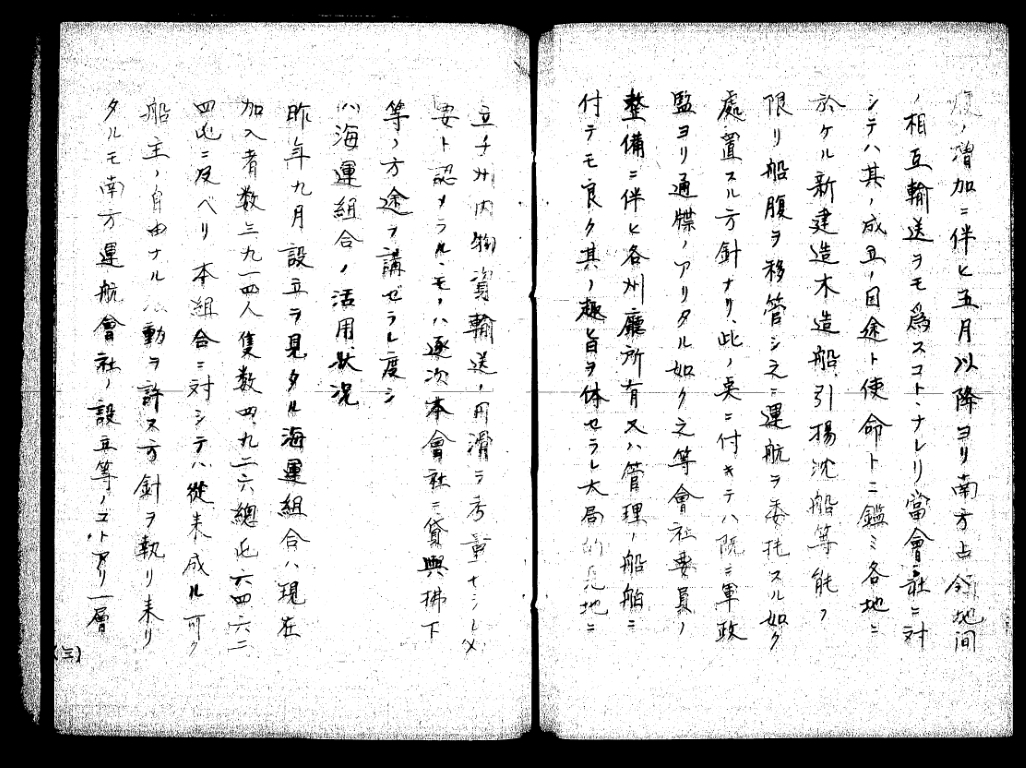 増加ニ伴ヒ五月以降ヨリ南方占領地间
ノ相互輸送ヲモ爲スコトヽナレリ當會社ニ対
シテハ其ノ成立ノ目途ト使命トニ鑑ミ各地ニ
於ケル新建造木造船、引揚沈船等能フ
限リ船腹ヲ移管シ之ニ運航ヲ委托スル如ク
處置スル方針ナリ、此ノ点ニ付キテハ既ニ軍政
監ヨリ通牒ノアリタル如ク之等會社要員ノ
整備ニ伴ヒ各州廳所有又ハ管理ノ船舶ニ
付テモ良ク其ノ趣旨ヲ体セラレ大局的見地ニ
立チ州内物資輸送ノ円滑ヲ考量ナシ
要ト認メラルヽモノハ逐次本會社ニ貸與拂下
等ノ方途ヲ講ゼラレ度シ
ハ海運組合ノ活用状況
昨年九月設立ヲ見タル海運組合ハ現在
加入者数三九一四人隻数四、九二六總屯六四六二
四屯ニ及ベリ本組合ニ対シテハ從来成ル可ク
船主ノ自由ナル動ヲ許ス方針ヲ執リ来リ
タルモ南方運航會社ノ設立等ノコトアリ一層
(三)